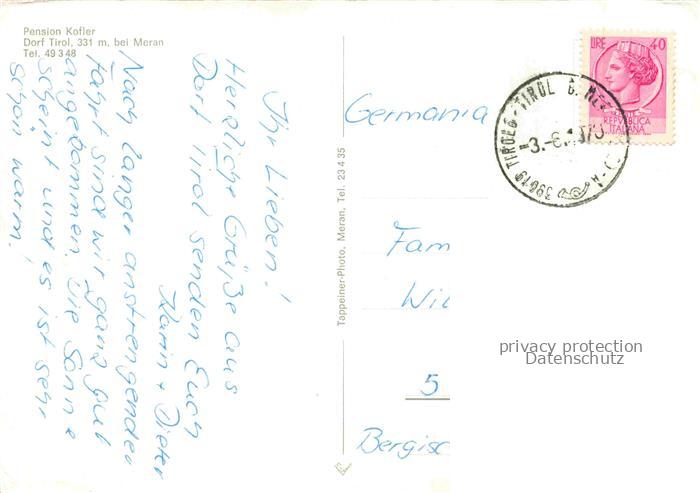 Pension Kofler
Dorf Tirol, 331 m, bei Meran
Tel. 49 3 48
Ihr Lieben!
Herzliche Grüße aus
Dorf Tirol senden Euch
Karin + Dieter
Nach langer anstrengender
Fahrt sind wir ganz gut
angekommen. Die Sonne
scheint und es ist sehr
schön warm!
Tappeiner-Photo, Meran, Tel. 23 4 35
LIRE 40
REPVBBLICA
ITALIANA
39019 TIROLO - TIROL
-3.-6.
Germania
Fam
Wil
5
Bergisc
privacy protection
Datenschutz